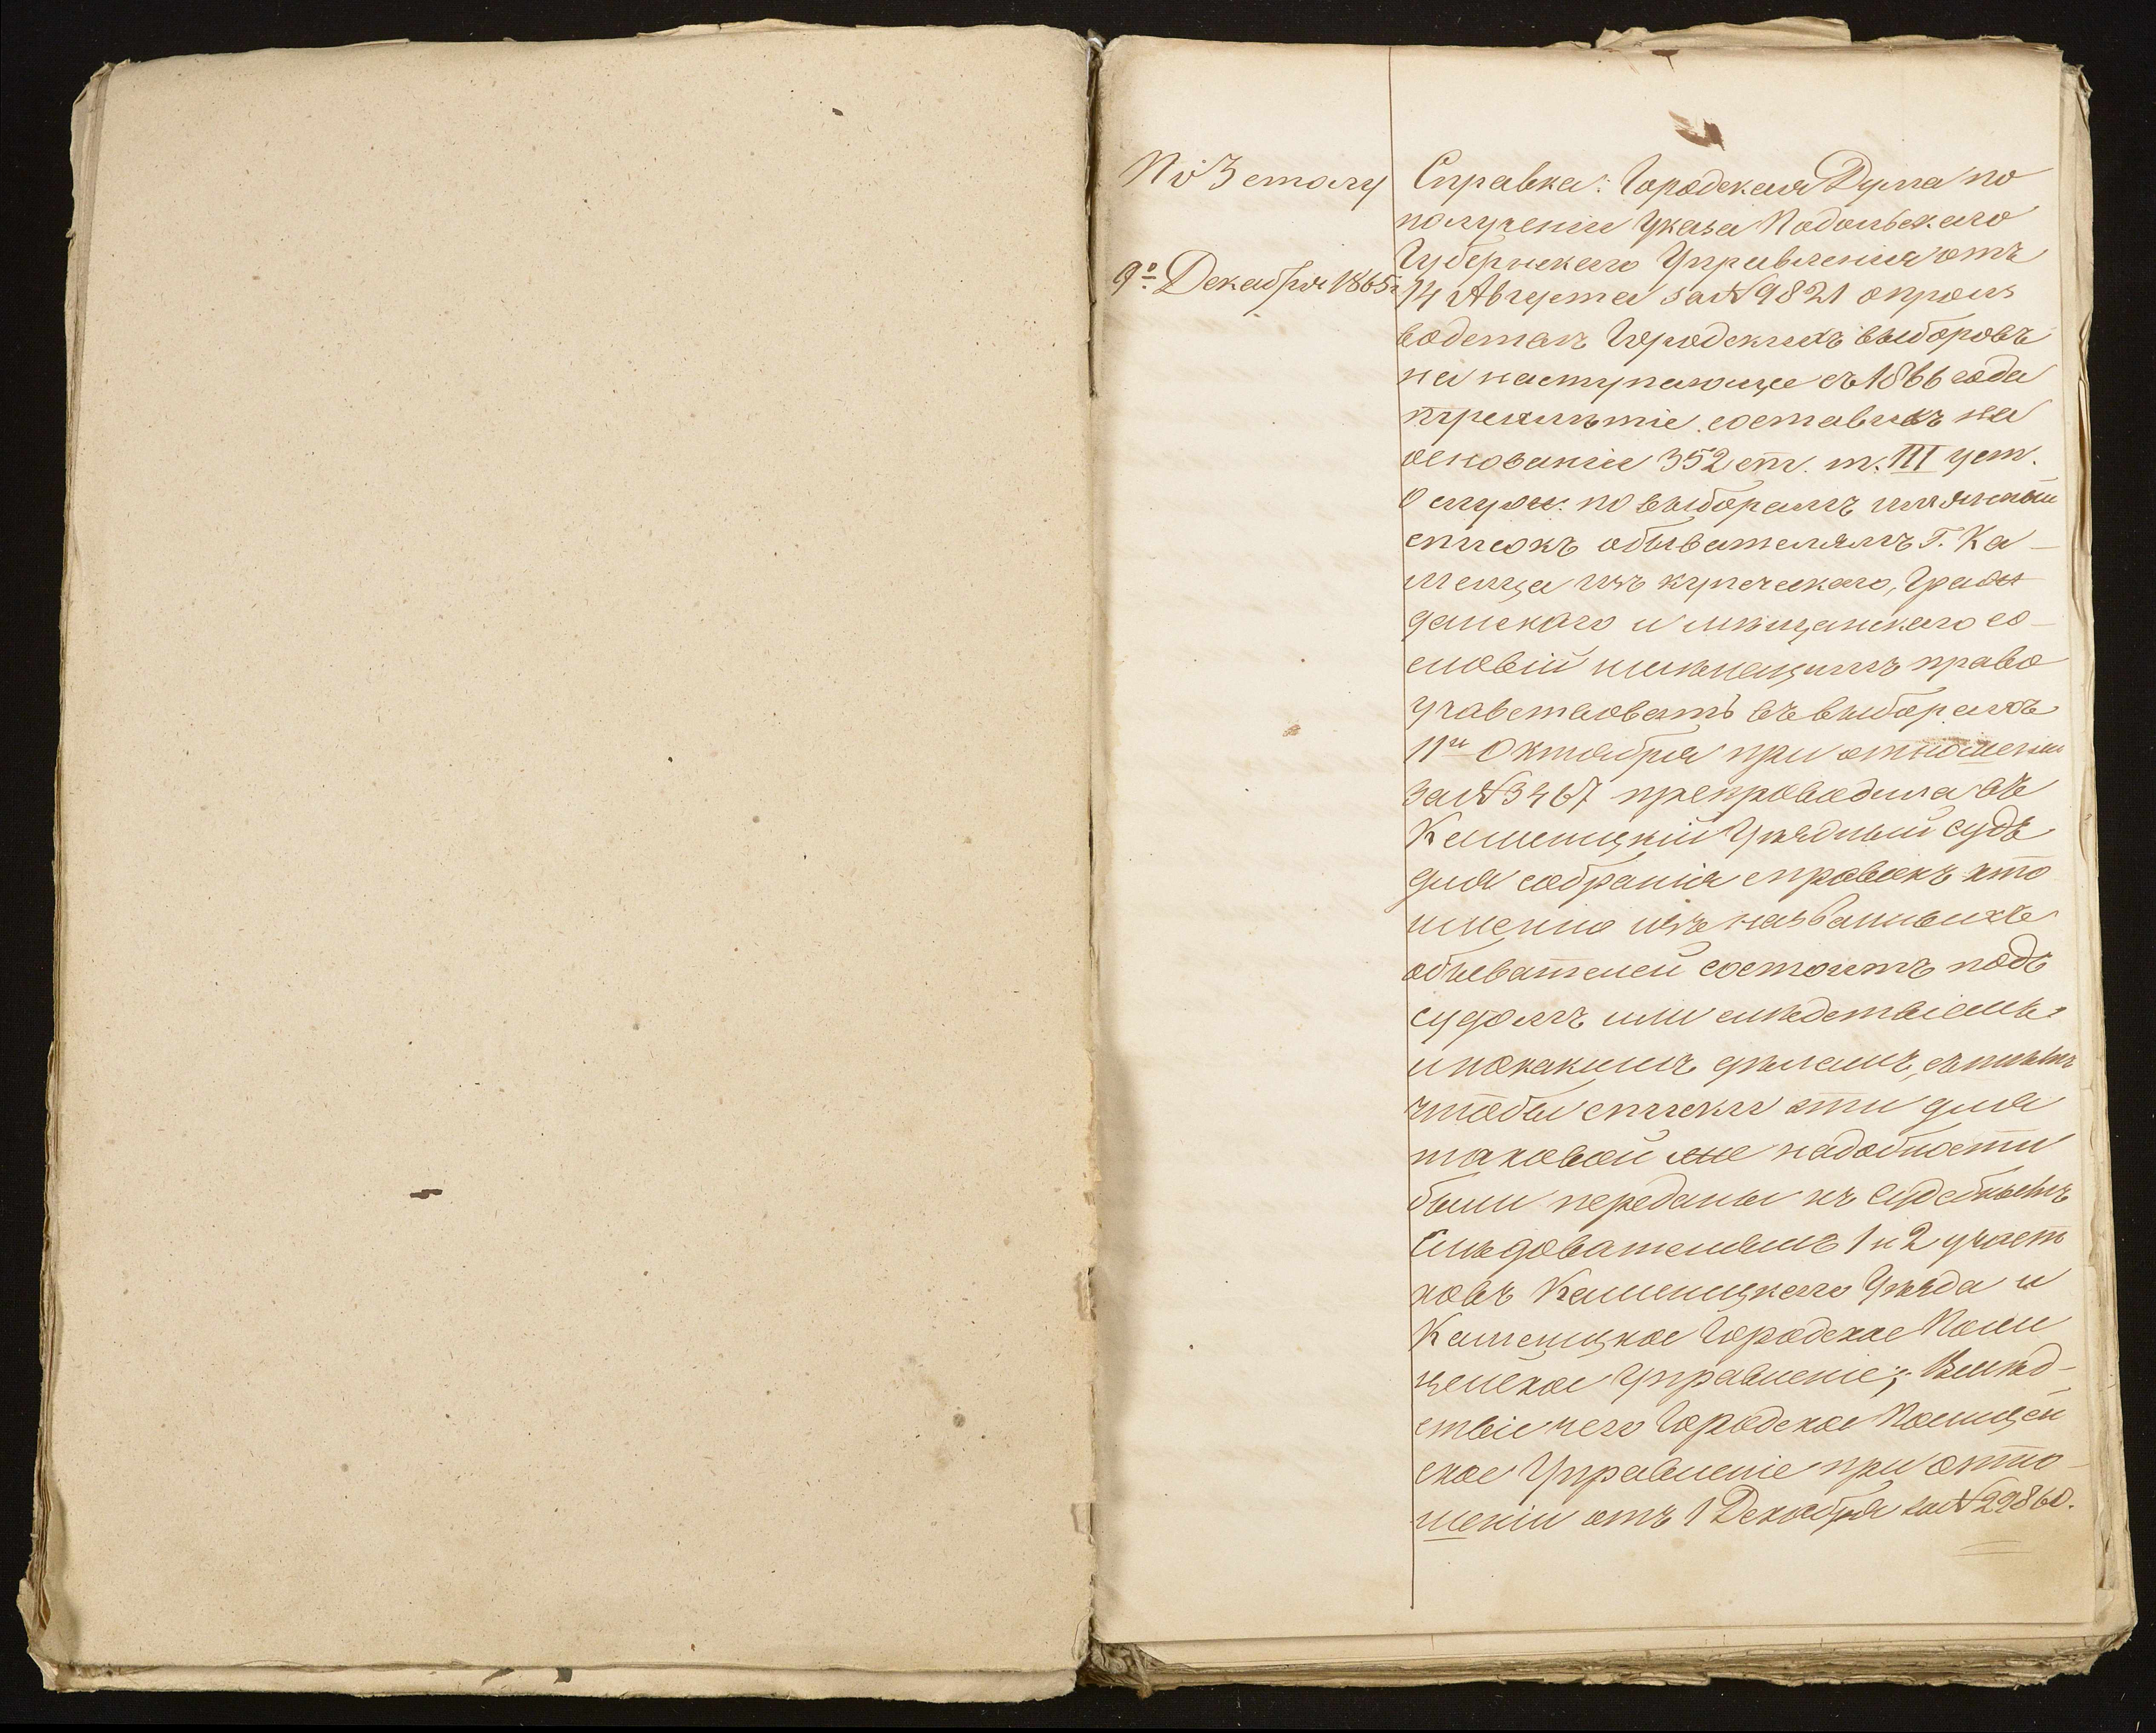 По 3 столу
9го Декабря 1865 г
Справка: Городская Дума по
получении Указа Подольскаго
Губернскаго Управления отъ
14 Августа за № 9821 о произ
водствѣ Городскихъ выборовъ
на наступающее съ 1866 года
трехлѣтіе составивъ на
основаніи 352 ст. т. III уст.
О служ: по выборамъ имянный
списокъ обывателямъ Г. Ка-
менца изъ купеческаго, Граж
данскаго и мѣщанскаго со-
словій имѣющимъ право
участвовать въ выборахъ
11го Октября при отношеніи
за № 3467 препроводила въ
Каменицкій Уѣздный Судъ
для собранія справокъ кто
имено изъ названныхъ
обывателей состоитъ подъ
судомъ или слѣдствіемъ
и по какимъ дѣламъ, съ тѣмъ
чтобы списки эти для
таковой же надобности
были переданы къ Судебнымъ
Слѣдователямъ 1 и 2 участ
ковъ Каменицкаго Уѣзда и
Каменицкое Городское Поли
цейское Управленіе; Вслѣд-
ствіи чего Городское Полицей
ское Управленіе при отно-
шеніи отъ 1 Декабря за № 29860.